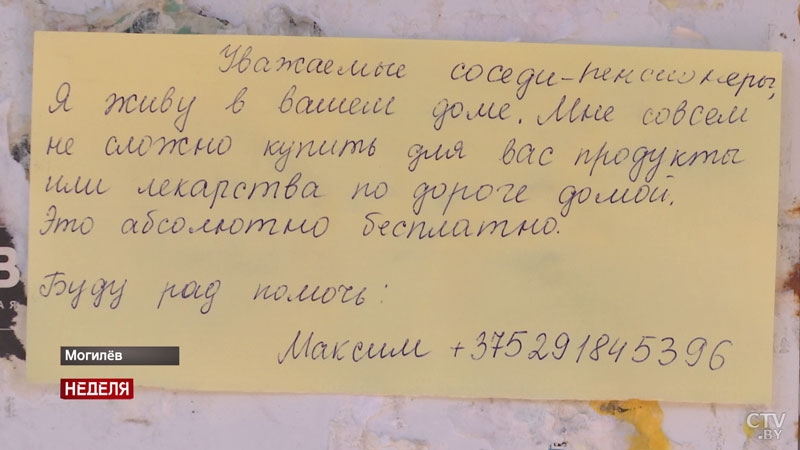 Уважаемые соседи-пенсионеры,
Я живу в вашем доме. Мне совсем
не сложно купить для вас продукты
или лекарства по дороге домой.
Это абсолютно бесплатно.
Буду рад помочь:
Максим +375291845396
В
АЯ
Могилёв
НЕДЕЛЯ
CTV
.BY